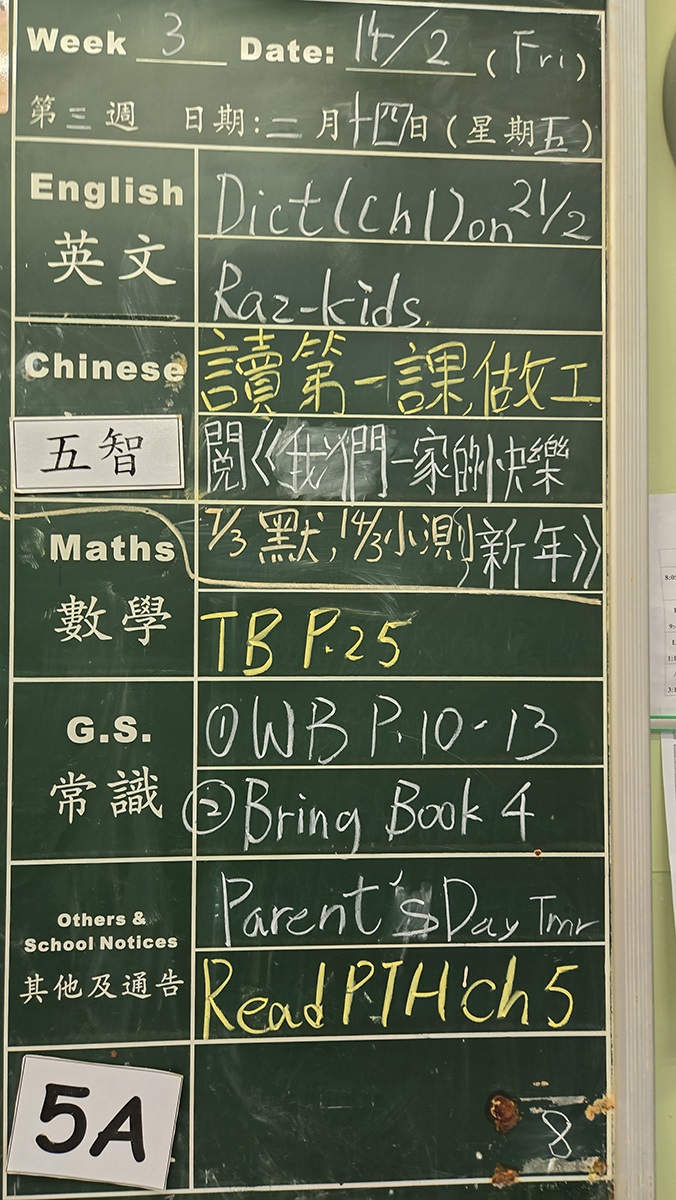 Week 3 Date: 14/2 (Fri)
第三週 日期:二月十四日(星期五)
English
英文
Dict(ch1)on 21/2
Raz-kids.
Chinese
讀第一課,做工
五智
閱《我們一家的快樂
Maths
數學
7/3 默, 14/3小測, 新年》
TB P.25
G.S.
常識
①WB P.10-13
②Bring Book 4
Others &
School Notices
其他及通告
Parent's Day Tmr
Read PTH ch 5
5A
8